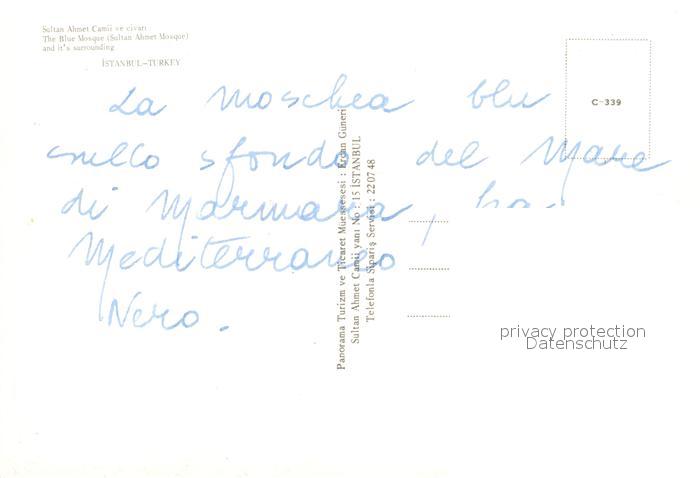 Sultan Ahmet Camii ve civarı
The Blue Mosque (Sultan Ahmet Mosque)
and it's surrounding
İSTANBUL-TURKEY
C-339
La moschea blu
sullo sfondo del Mare
di Marmara,
Mediterraneo
Nero.
Panorama Turizm ve Ticaret Müessesesi : Ercan Güneri
Sultan Ahmet Camii yanı No : 15 İSTANBUL
Telefonla Sipariş Servisi : 22 07 48
privacy protection
Datenschutz